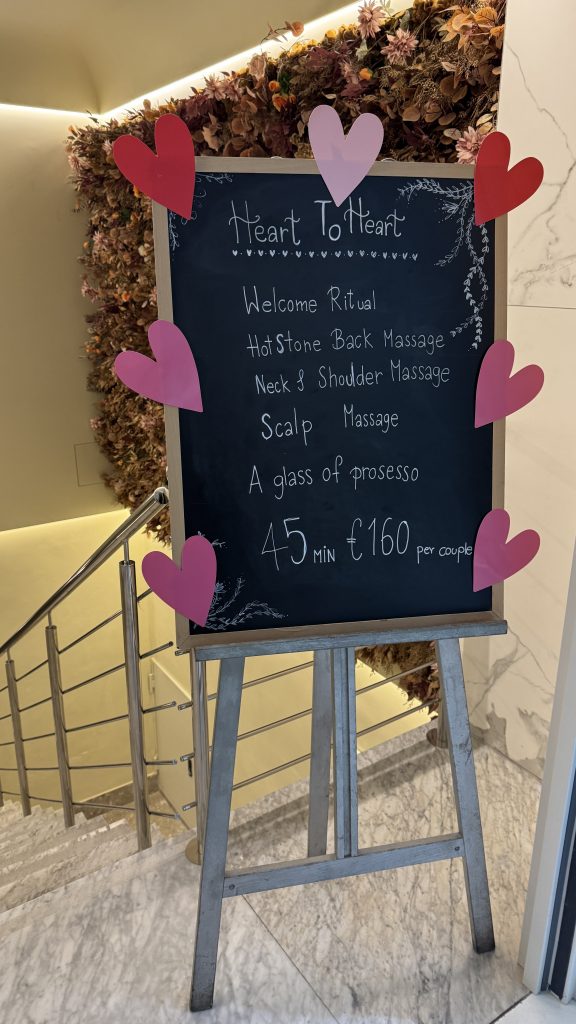 Heart To Heart
Welcome Ritual
Hot Stone Back Massage
Neck & Shoulder Massage
Scalp Massage
A glass of prosesso
45 MIN €160 per couple